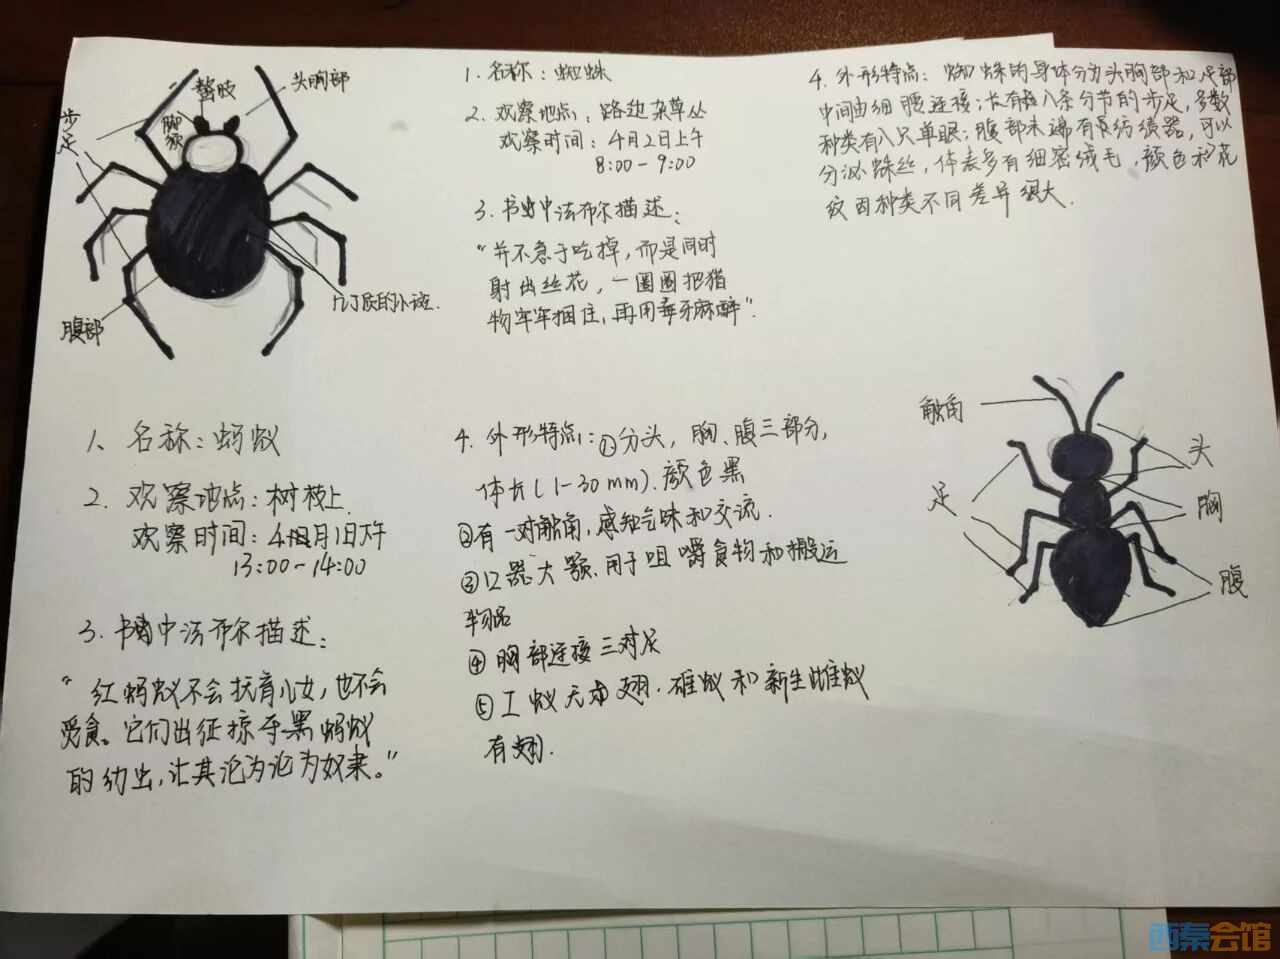 螯肢
头胸部
步足
腹部
几丁质的小斑.
1. 名称: 蜘蛛
2. 观察地点: 路边杂草丛
观察时间: 4月2日上午
8:00-9:00
3. 书中法布尔描述:
“并不急于吃掉, 而是同时
射出丝花, 一圈圈把猎
物牢牢捆住, 再用毒牙麻醉”.
4. 外形特点: 蜘蛛的身体分为头胸部和足部
中间由细腰连接; 长有八条分节的步足, 多数
种类有八只单眼; 腹部末端有纺绩器, 可以
分泌蛛丝, 体表多有细密绒毛, 颜色和花
纹因种类不同差异很大.
1、名称: 蚂蚁
2. 观察地点: 树枝上.
观察时间: 4月1日下午
13:00-14:00
3. 书中法布尔描述:
“红蚂蚁不会抚育儿女, 也不会
觅食。它们出征掠夺黑蚂蚁
的幼虫, 让其沦为沦为奴隶。”
4. 外形特点: ①分头, 胸、腹三部分,
体长(1-30mm). 颜色黑
②有一对触角, 感知气味和交流.
③口器大颚, 用于咀嚼食物和搬运
物品
④胸部连接三对足
⑤工蚁无翅. 雄蚁和新生雌蚁
有翅.
触角
头
足
胸
腹
西秦会馆